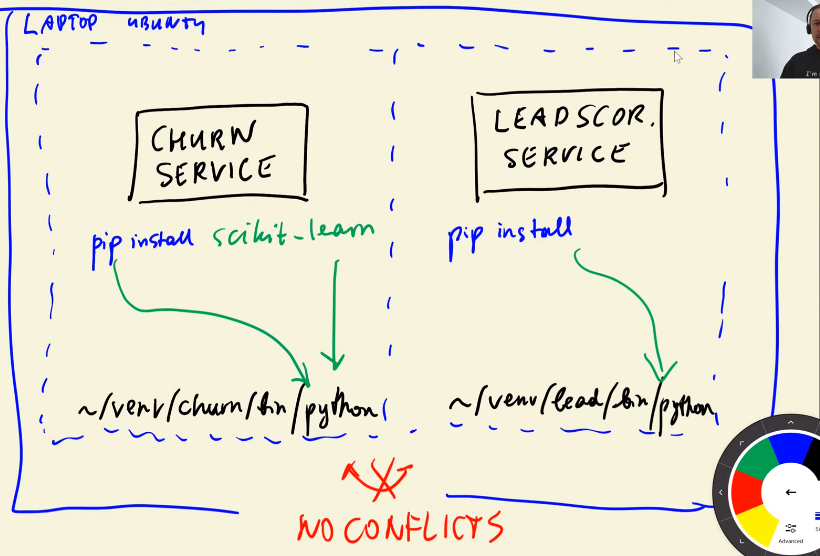 LAPTOP UBUNTU
CHURN
SERVICE
pip install scikit-learn
~/venv/churn/bin/python
LEADSCOR.
SERVICE
pip install
~/venv/lead/bin/python
NO CONFLICTS
Advanced